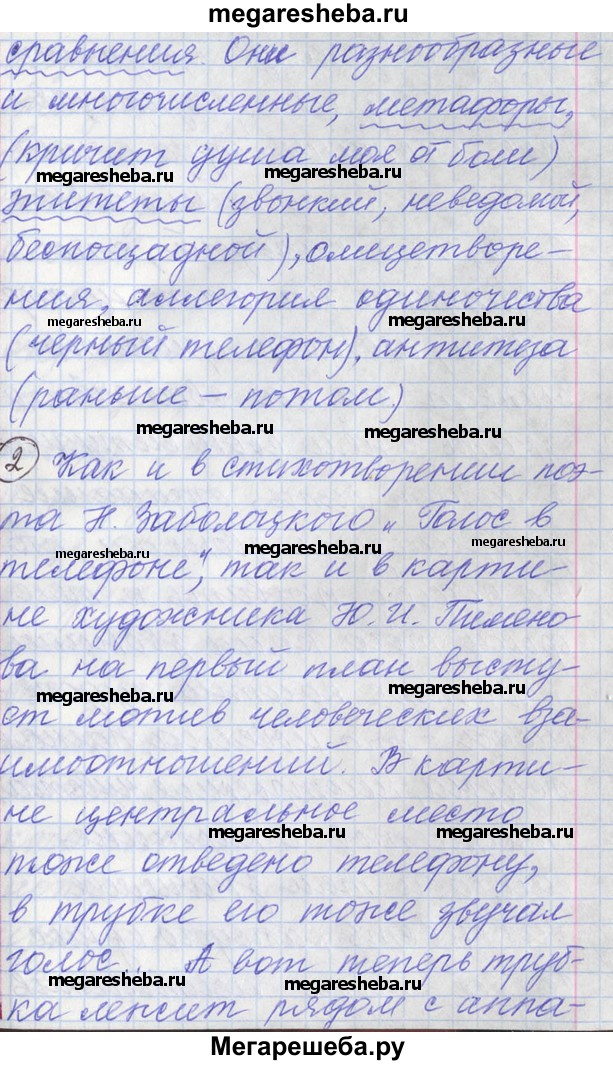 megaresheba.ru
сравнения. Они разнообразные
и многочисленные, метафоры,
(кричит душа моя от боли)
megaresheba.ru megaresheba.ru
эпитеты (звонкий, неведомой,
беспощадной), олицетворе-
ния, аллегория одиночества
megaresheba.ru megaresheba.ru
(черный телефон), антитеза
(раньше – потом)
megaresheba.ru megaresheba.ru
2 Как и в стихотворении поэ-
та Н. Заболоцкого „Голос в
megaresheba.ru megaresheba.ru megaresheba.ru
телефоне", так и в карти-
не художника Ю. И. Пимено-
ва на первый план высту-
megaresheba.ru megaresheba.ru
ет мотив человеческих вза-
имоотношений. В карти-
не центральное место
megaresheba.ru megaresheba.ru
тоже отведено телефону,
в трубке его тоже звучал
голос... А вот теперь труб-
megaresheba.ru megaresheba.ru
ка лежит рядом с аппа-
Мегарешеба.ру